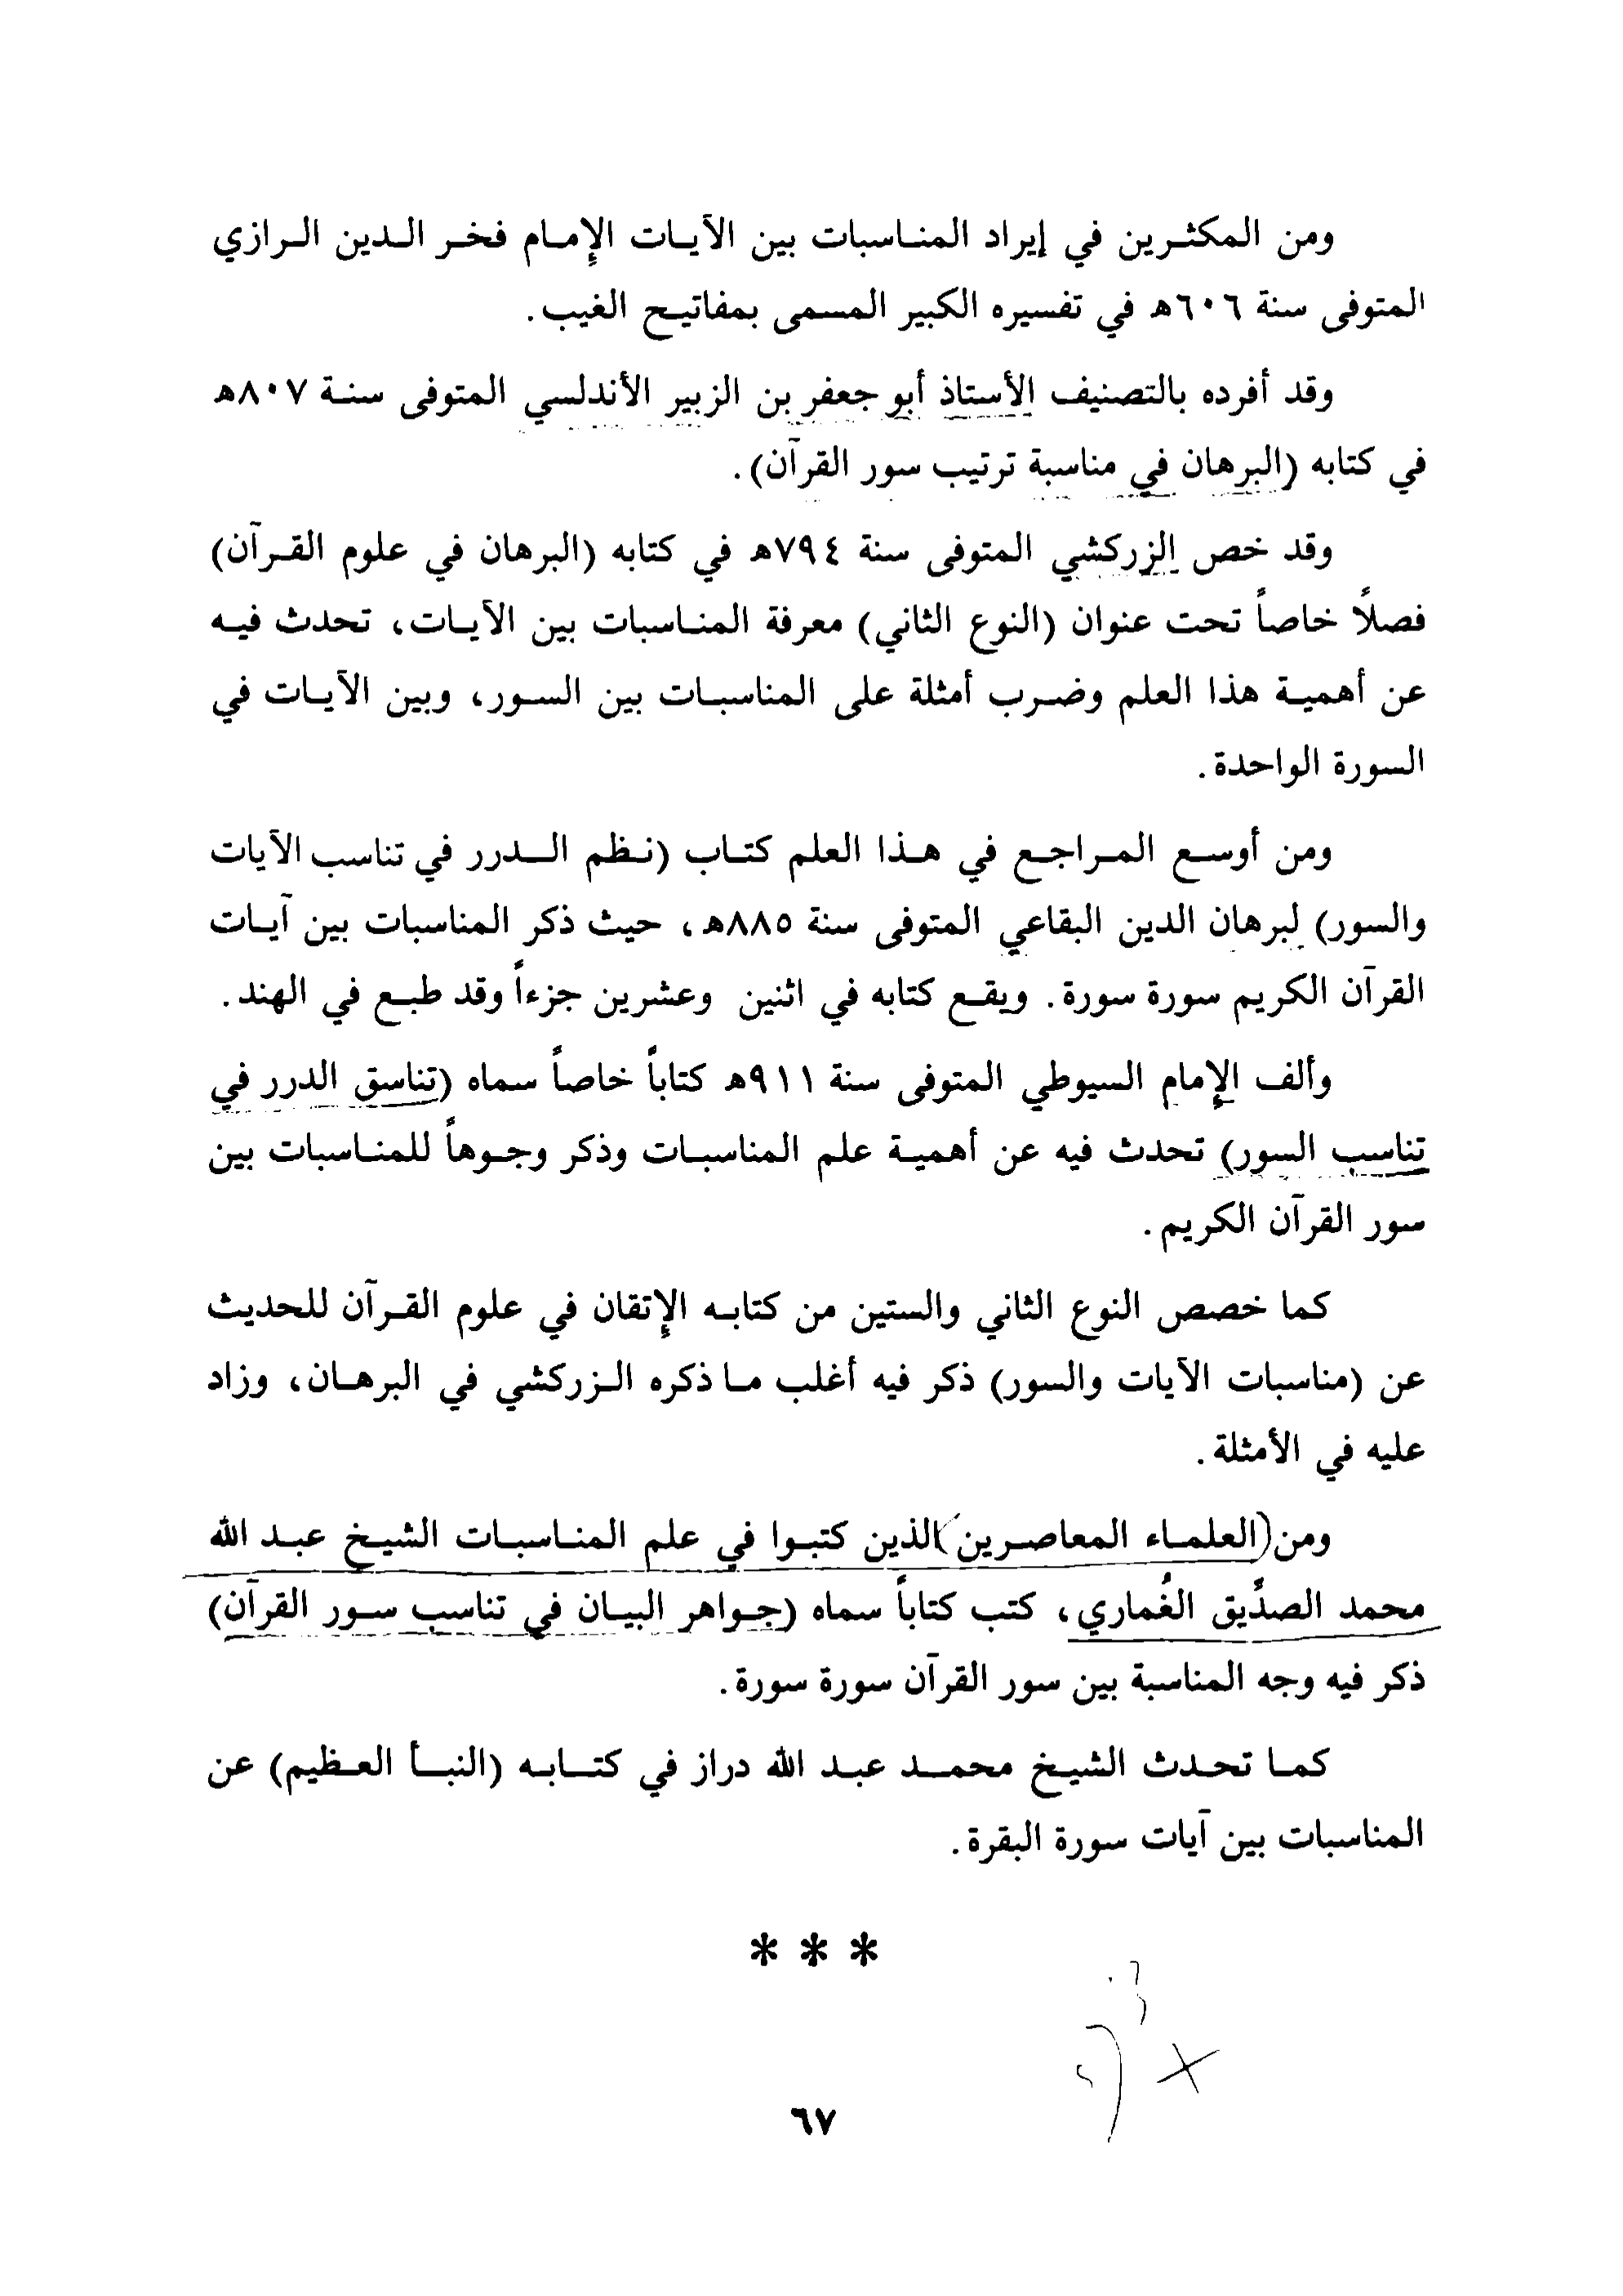 ومن المكثرين في إيراد المناسبات بين الآيات الإمام فخر الدين الرازي
المتوفى سنة ٦٠٦هـ في تفسيره الكبير المسمى بمفاتيح الغيب.
وقد أفرده بالتصنيف الأستاذ أبو جعفر بن الزبير الأندلسي المتوفى سنة ٨٠٧هـ
في كتابه (البرهان في مناسبة ترتيب سور القرآن).
وقد خص الزركشي المتوفى سنة ٧٩٤هـ في كتابه (البرهان في علوم القرآن)
فصلاً خاصاً تحت عنوان (النوع الثاني) معرفة المناسبات بين الآيات، تحدث فيه
عن أهمية هذا العلم وضرب أمثلة على المناسبات بين السور، وبين الآيات في
السورة الواحدة.
ومن أوسع المراجع في هذا العلم كتاب (نظم الدرر في تناسب الآيات
والسور) لبرهان الدين البقاعي المتوفى سنة ٨٨٥هـ، حيث ذكر المناسبات بين آيات
القرآن الكريم سورة سورة. ويقع كتابه في اثنين وعشرين جزءاً وقد طبع في الهند.
وألف الإمام السيوطي المتوفى سنة ٩١١هـ كتاباً خاصاً سماه (تناسق الدرر في
تناسب السور) تحدث فيه عن أهمية علم المناسبات وذكر وجوهاً للمناسبات بين
سور القرآن الكريم.
كما خصص النوع الثاني والستين من كتابه الإتقان في علوم القرآن للحديث
عن (مناسبات الآيات والسور) ذكر فيه أغلب ما ذكره الزركشي في البرهان، وزاد
عليه في الأمثلة.
ومن (العلماء المعاصرين) الذين كتبوا في علم المناسبات الشيخ عبد الله
محمد الصدِّيق الغُماري، كتب كتاباً سماه (جواهر البيان في تناسب سور القرآن)
ذكر فيه وجه المناسبة بين سور القرآن سورة سورة.
كما تحدث الشيخ محمد عبد الله دراز في كتابه (النبأ العظيم) عن
المناسبات بين آيات سورة البقرة.
* * *
٦٧